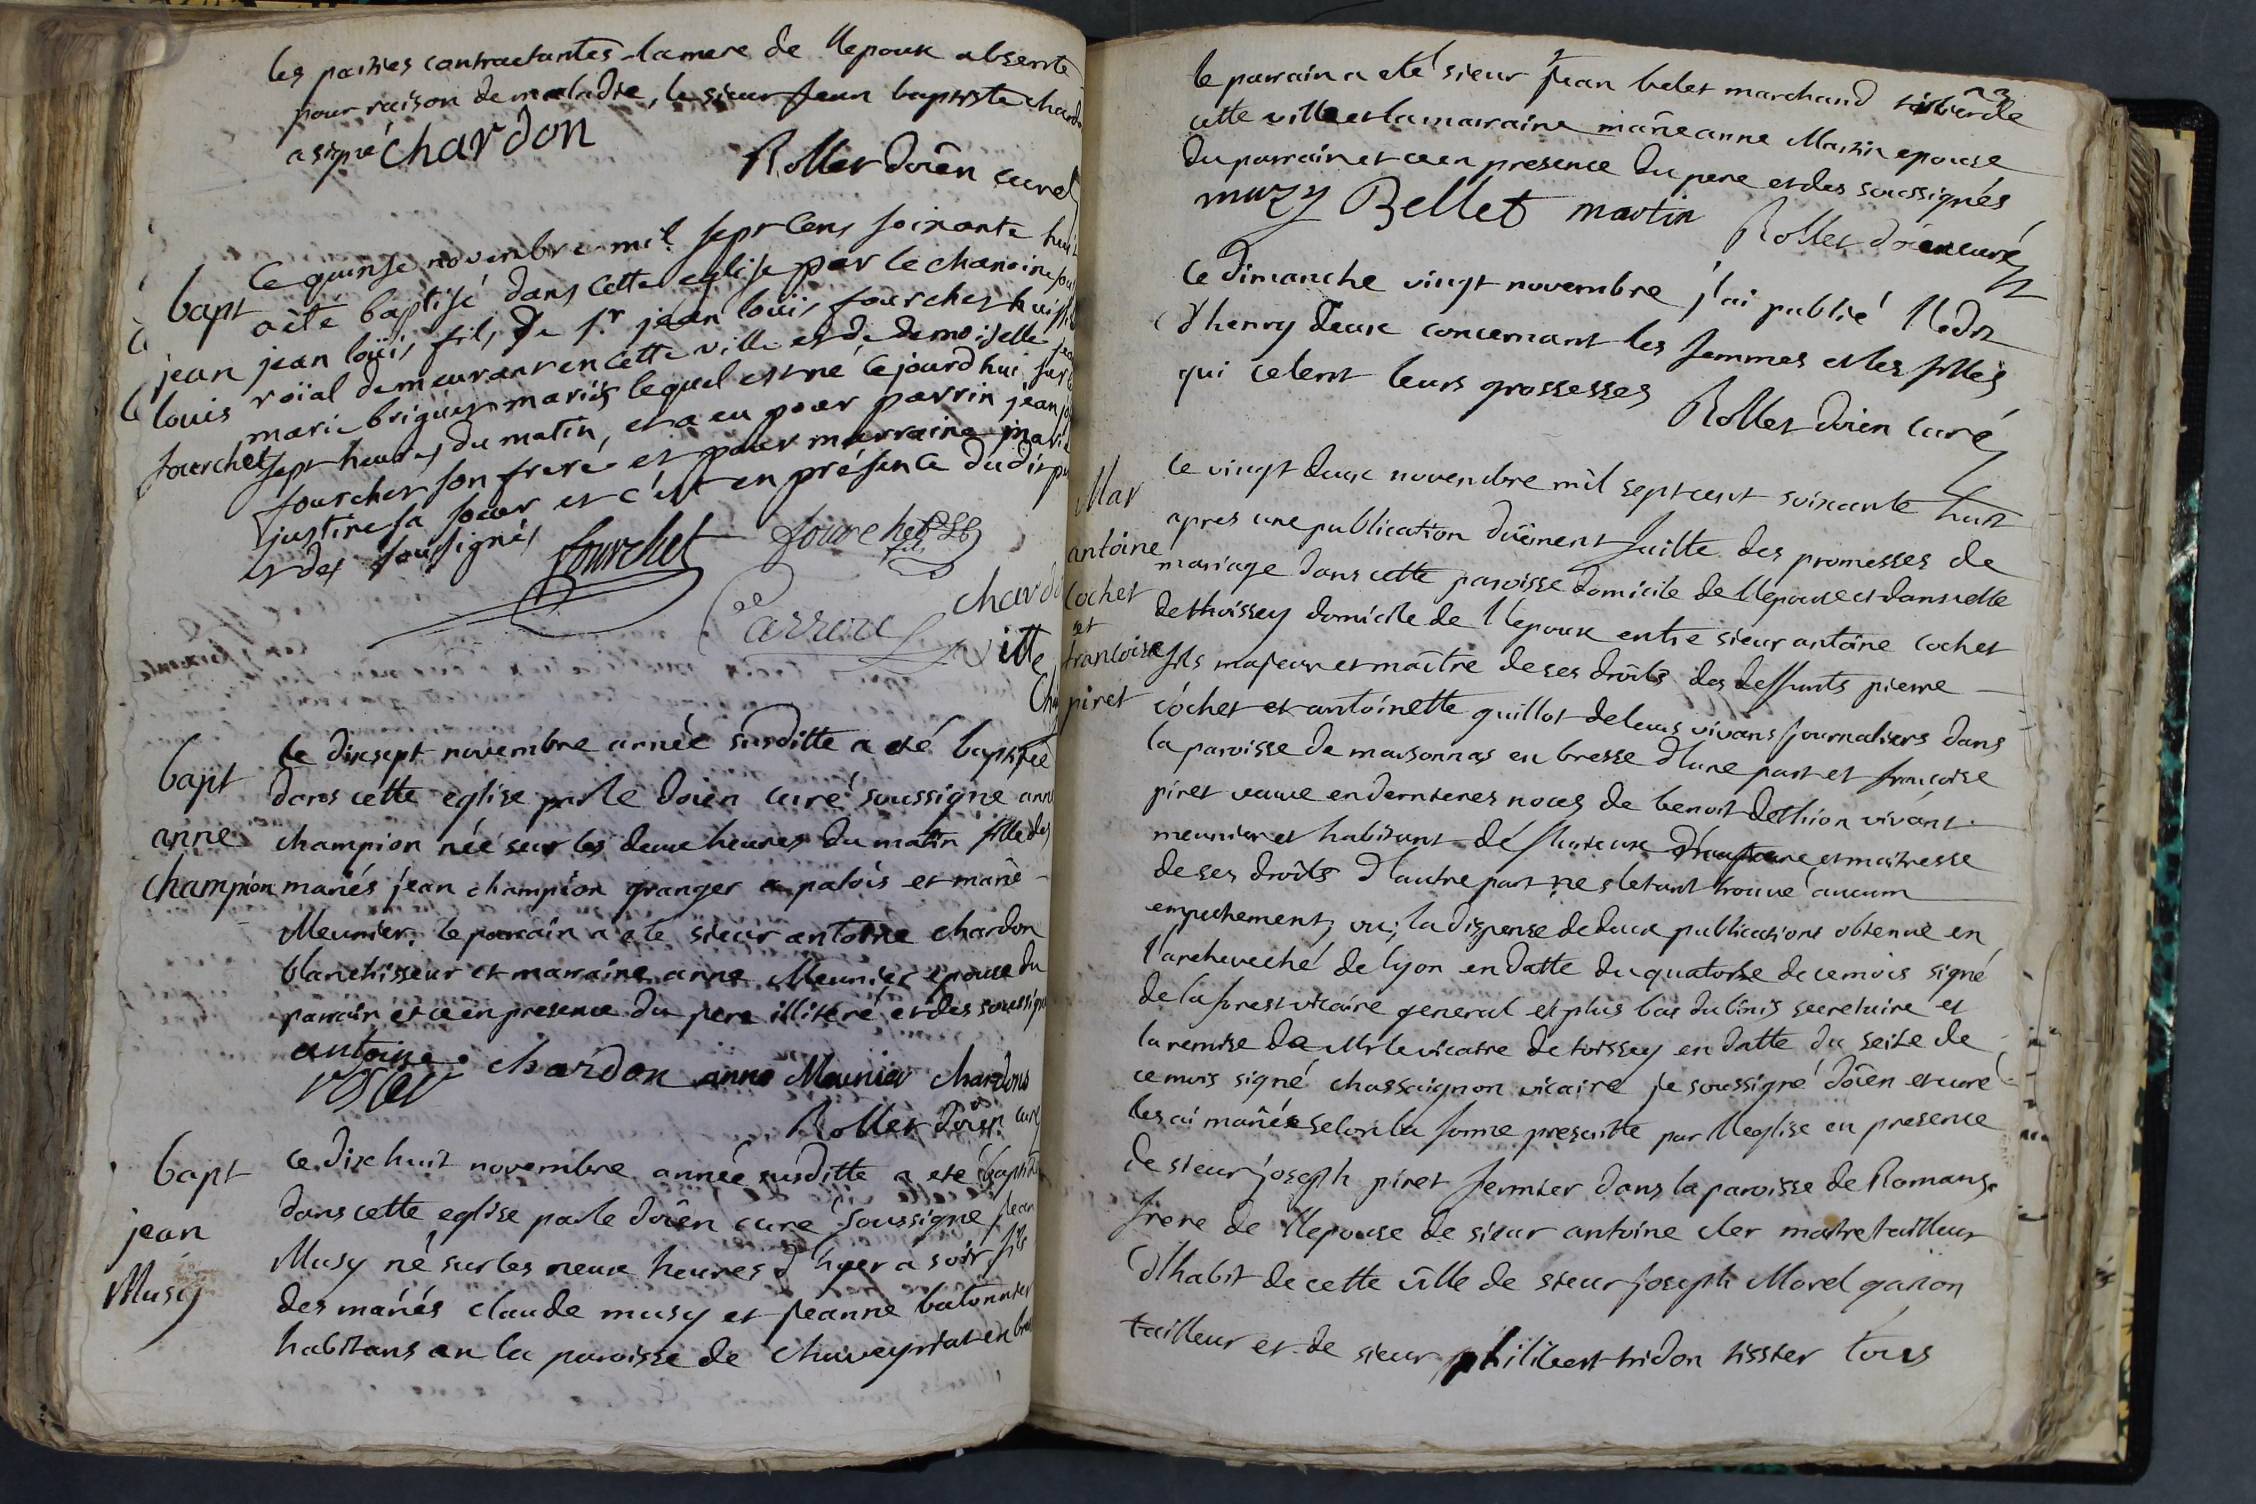 les parties contractantes la mere de l'epoux absente
pour raison de maladie, le sieur jean baptiste chardo
a signé chardon
Rollet doïen curé
Ce quinse novembre mil sept cens soixante huit
bapt a été baptisé dans cette eglise par le chanoine sous
jean jean loüis fils de Sr jean loüis fourchet huissie
louis roïal demeurant en cette ville et de demoiselle jea
marie briguet mariés lequel est né cejourd'hui sur le
fourchet sept heures du matin, et a eu pour parrin jean jo
fourchet son frere et pour marraine marie
justine sa soeur et c'est en présence dudit pe
et des soussignés
fourchet fourchet fils
chardo
Carrere
Vitte
Cha
le dixsept novembre année susditte a eté baptisée
bapt dans cette eglise par le doien curé soussigne anne
anne champion née sur les deux heures du matin fille des
champion mariés jean champion granger a palois et marie
Meunier, le parrain a ete sieur antoine chardon
blanchisseur et marraine anne Meunier epouse du
parrain et ce en presence du pere illiteré et des soussign
antoine chardon anne Meunier chardons
Rollet doïen curé
bapt Ce dixhuit novembre année susditte a eté baptisé
jean dans cette eglise par le doïen curé soussigne jean
Musy Musy né sur les neux heures d'hyer a soir fils
des mariés claude musy et jeanne batonnier
habitans en la paroisse de chaveyriat en bre
le parrain a eté sieur jean belet marchand de
cette ville et la marraine marie anne Martin epouse
du parrain et ce en presence du pere et des soussignés
muzy Bellet martin Rollet doïen curé
Ce dimanche vingt novembre j'ai publié l'edit
d'henry deux concernant les femmes et les filles
qui celent leurs grossesses
Rollet doïen curé
Mar le vingt deux novembre mil sept cent soixante huit
apres une publication duëment faitte des promesses de
antoine mariage dans cette paroisse domicile de l'epouse et dans celle
cochet de thoissey domicile de l'epoux entre sieur antoine cochet
et
francoise fils majeur et maître de ses droits des deffunts pierre
piret cochet et antoinette guillot de leurs vivans journaliers dans
la paroisse de marsonnas en bresse d'une part et francoise
piret veuve en dernieres noces de benoit dethion vivant
meunier et habitant de fleurieux et maitresse
de ses droits d'autre part ne s'etant trouvé aucun
empechement, vu, la dispense de deux publications obtenue en
l'archeveché de lyon en datte du quatorse de ce mois signé
de la forest vicaire general et plus bas dulinis secretaire et
la remise de Mr le vicaire de toissey en datte du seize de
ce mois signé chassaignon vicaire je soussigné doïen et curé
les ai mariés selon la forme prescritte par l'eglise en presence
de sieur joseph piret fermier dans la paroisse de Romans
frere de l'epouse de sieur antoine cler maitre tailleur
d'habit de cette ville de sieur joseph Morel garcon
tailleur et de sieur philibert tridon tissier tous